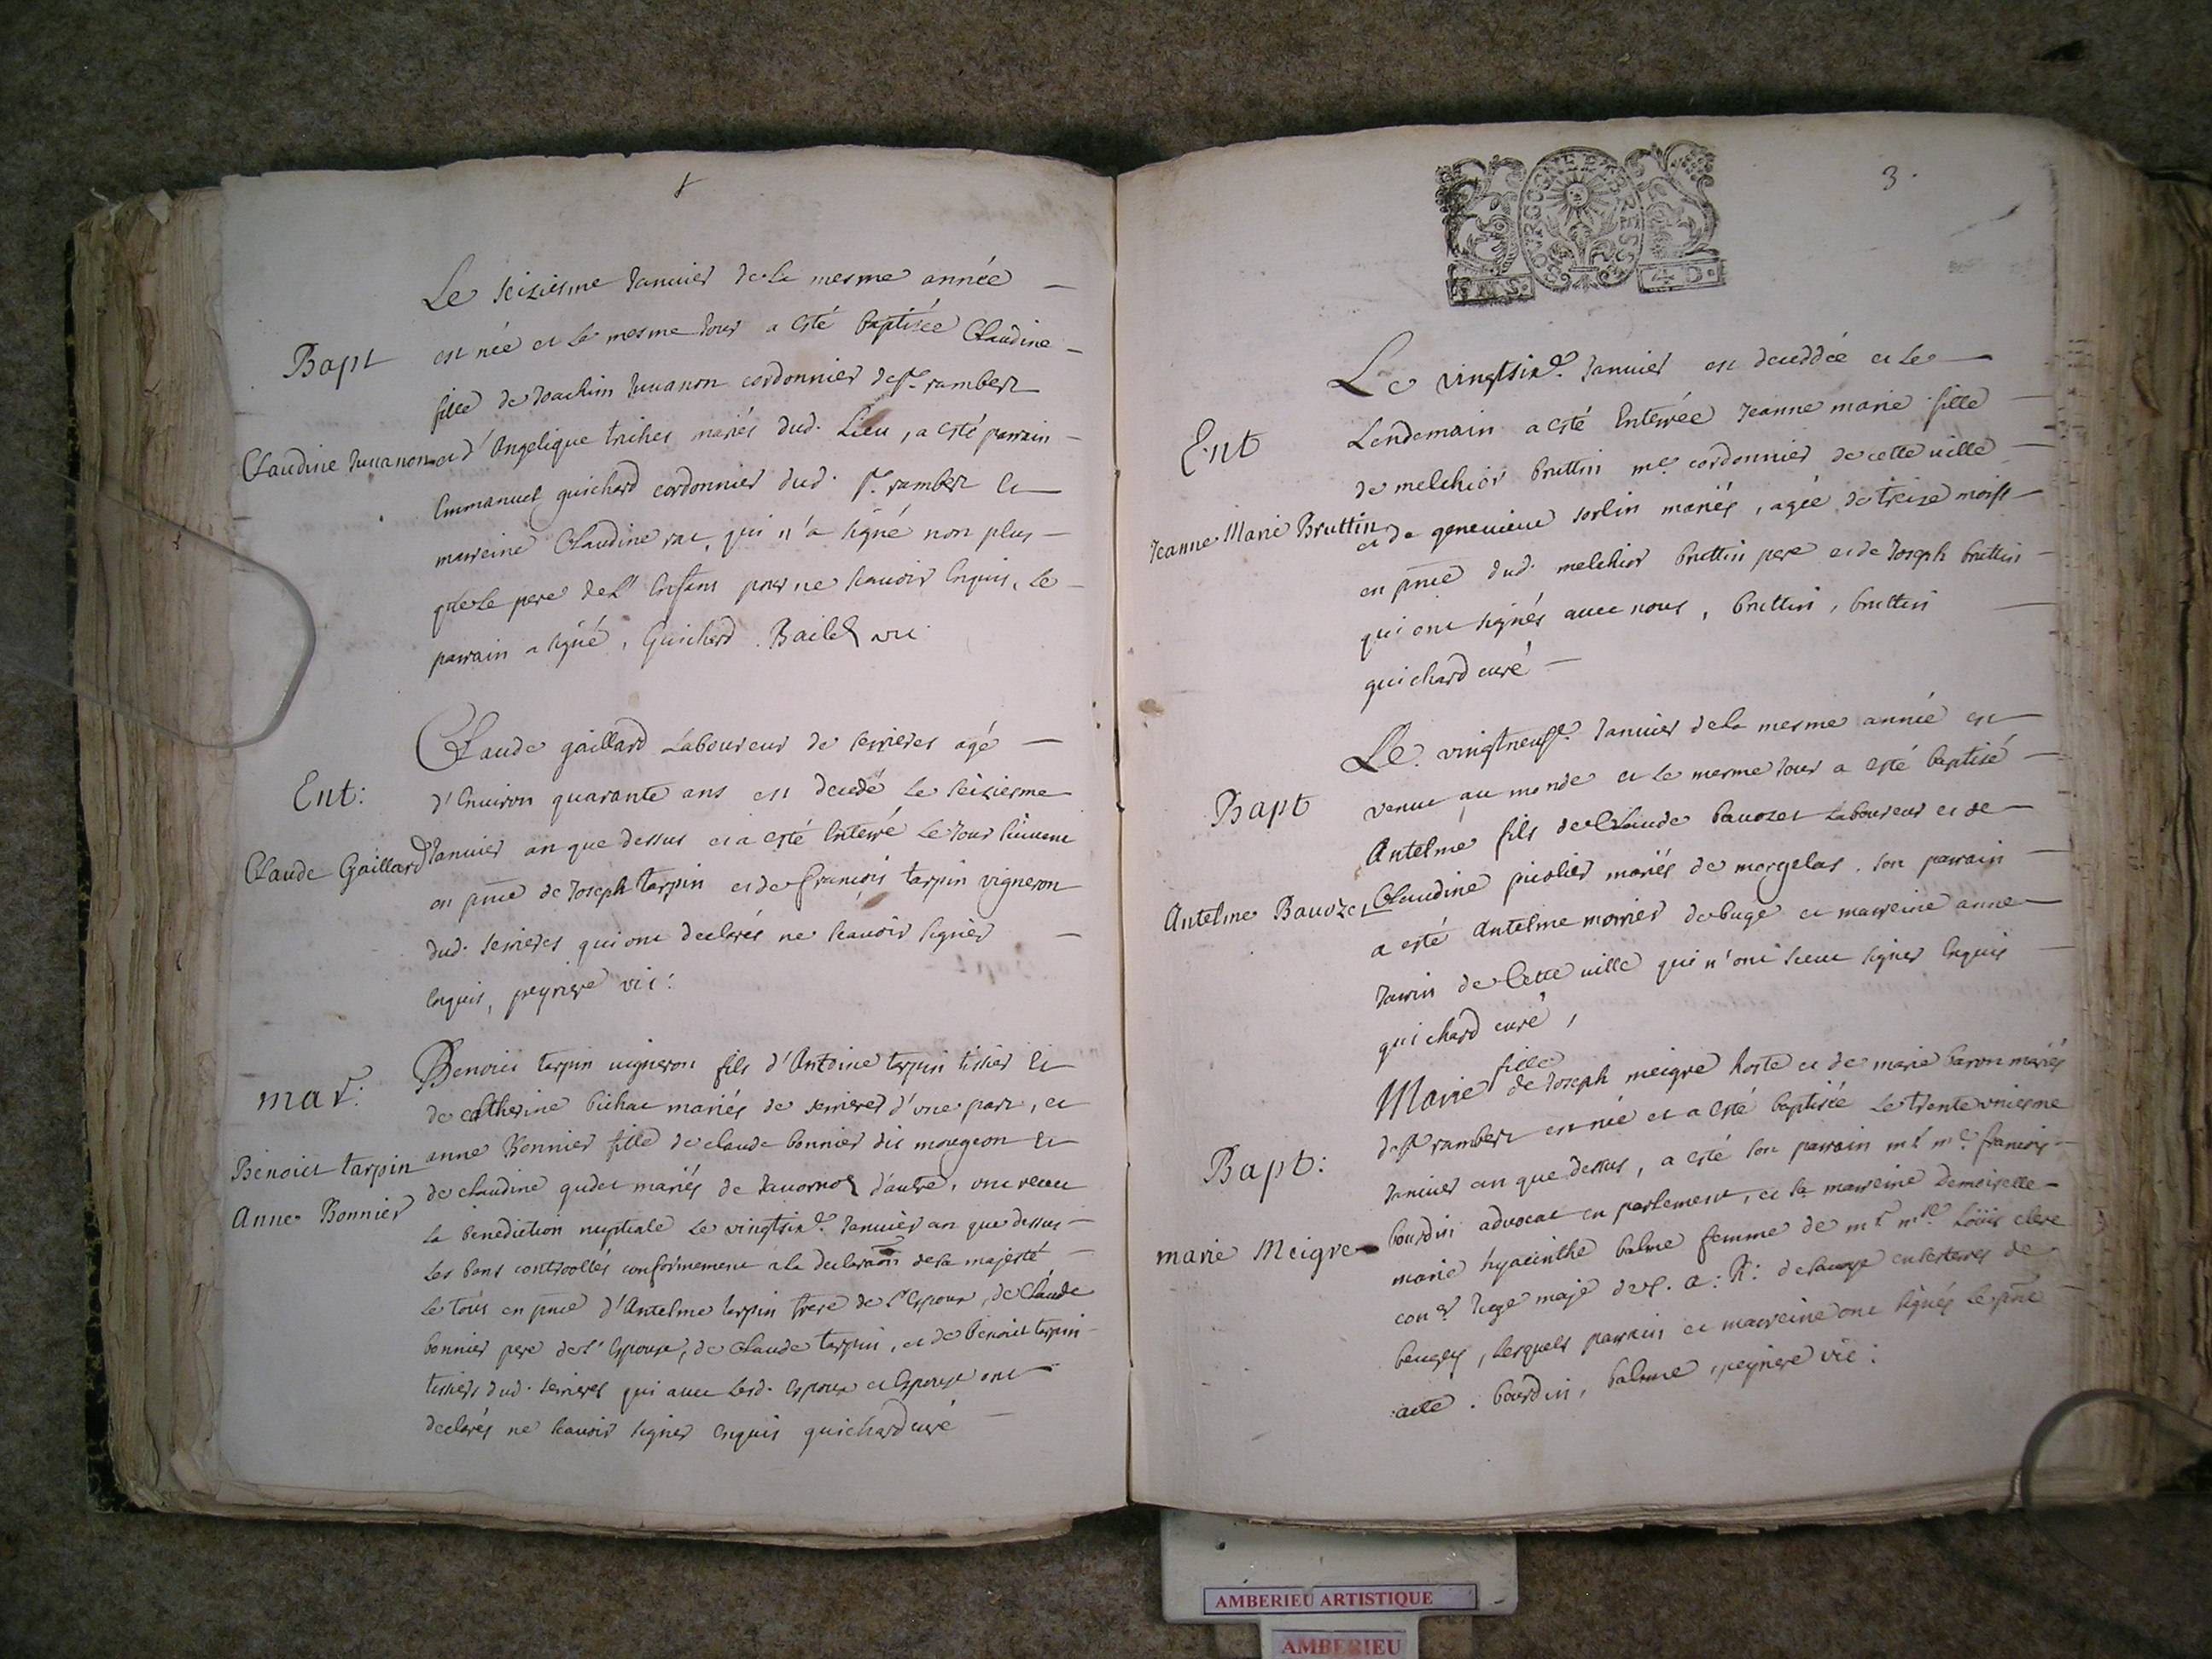 Le seiziesme Janvier de la mesme année
Bapt
est née et le mesme Jour a esté baptisée Claudine
fille de Joachim Juuanon cordonnier de St rambert
Claudine Juuanon
et d'Angelique triches mariés dud. Lieu, a esté parrain
Emmanuel guichard cordonnier dud. St. rambert et
marreine Claudine rat, qui n'a signé non plus
que le pere de l'Enfant pour ne scauoir Enquis, le
parrain a signé, Guichard. Bailly vic.
Claude gaillard Laboureur de serrieres agé
Ent:
d'Enuiron quarante ans est decedé Le seiziesme
Claude Gaillard
Januier an que dessus et a esté Enterré Le Jour suiuant
en pnce de Joseph tarpin et de françois tarpin vigneron
dud. serrieres qui ont declarés ne scauoir signer
Enquis, peyrere vic:
Benoict tarpin uigneron fils d'Antoine tarpin tissier Et
mar:
de catherine bichat mariés de serrieres d'vne part, et
anne Bonnier fille de claude bonnier dit mougeon Et
Benoict tarpin
de claudine gudet mariés de Jauornoz d'autre, ont receu
Anne Bonnier
la benediction nuptiale Le vingtsixe. Januier an que dessus
Les bans controollés conformement a la declaraon de sa majesté
Le tous en pnce d'Antelme tarpin frere de l'Epoux, de Claude
bonnier pere de l'Epouse, de Claude tarpin, et de benoict tarpin
tissiers dud. serrieres qui auec lesd. Epoux et Epouse ont
declarés ne scauoir signer Enquis guichard curé
3.
BOURGOGNE ET BRESSE
4 D.
Le vingtsixe. Januier est deceddée et Le
Ent
Lendemain a esté Enterrée Jeanne marie fille
de melchior bruttin me. cordonnier de cette uille
Jeanne Marie Bruttin
et de geneuieue sorlin mariés, agée de treize moiss
en pnce dud. melchior bruttin pere et de Joseph bruttin
qui ont signés auec nous, bruttin, bruttin
guichard curé
Le vingtneufe. Januier de la mesme année est
Bapt
venu au monde et Le mesme Jour a esté baptisé
Antelme fils de Claude bauozet Laboureur et de
Antelme Bauozet
Claudine picolier mariés de morgelas. son parrain
a esté Antelme morrier de buge et marreine anne
Jarrin de Cette uille qui n'ont sceu signer Enquis
guichard curé,
fille
Marie de Joseph meigre hoste et de marie baron mariés
Bapt:
de St rambert est née et a esté baptisée Le trente vniesme
Januier an que dessus, a esté son parrain mr me. françois
marie Meigre
bourdin aduocat en parlement, et sa marreine Demoiselle
marie hyacinthe balme femme de mr me. Loüis clerc
coner. Juge maje de S. A: R: de sauoye en terres de
beugey, Lesquels parrain et marreine ont signés Le pnt
acte. bourdin, balme, peyrere vic:
AMBERIEU ARTISTIQUE
AMBERIEU